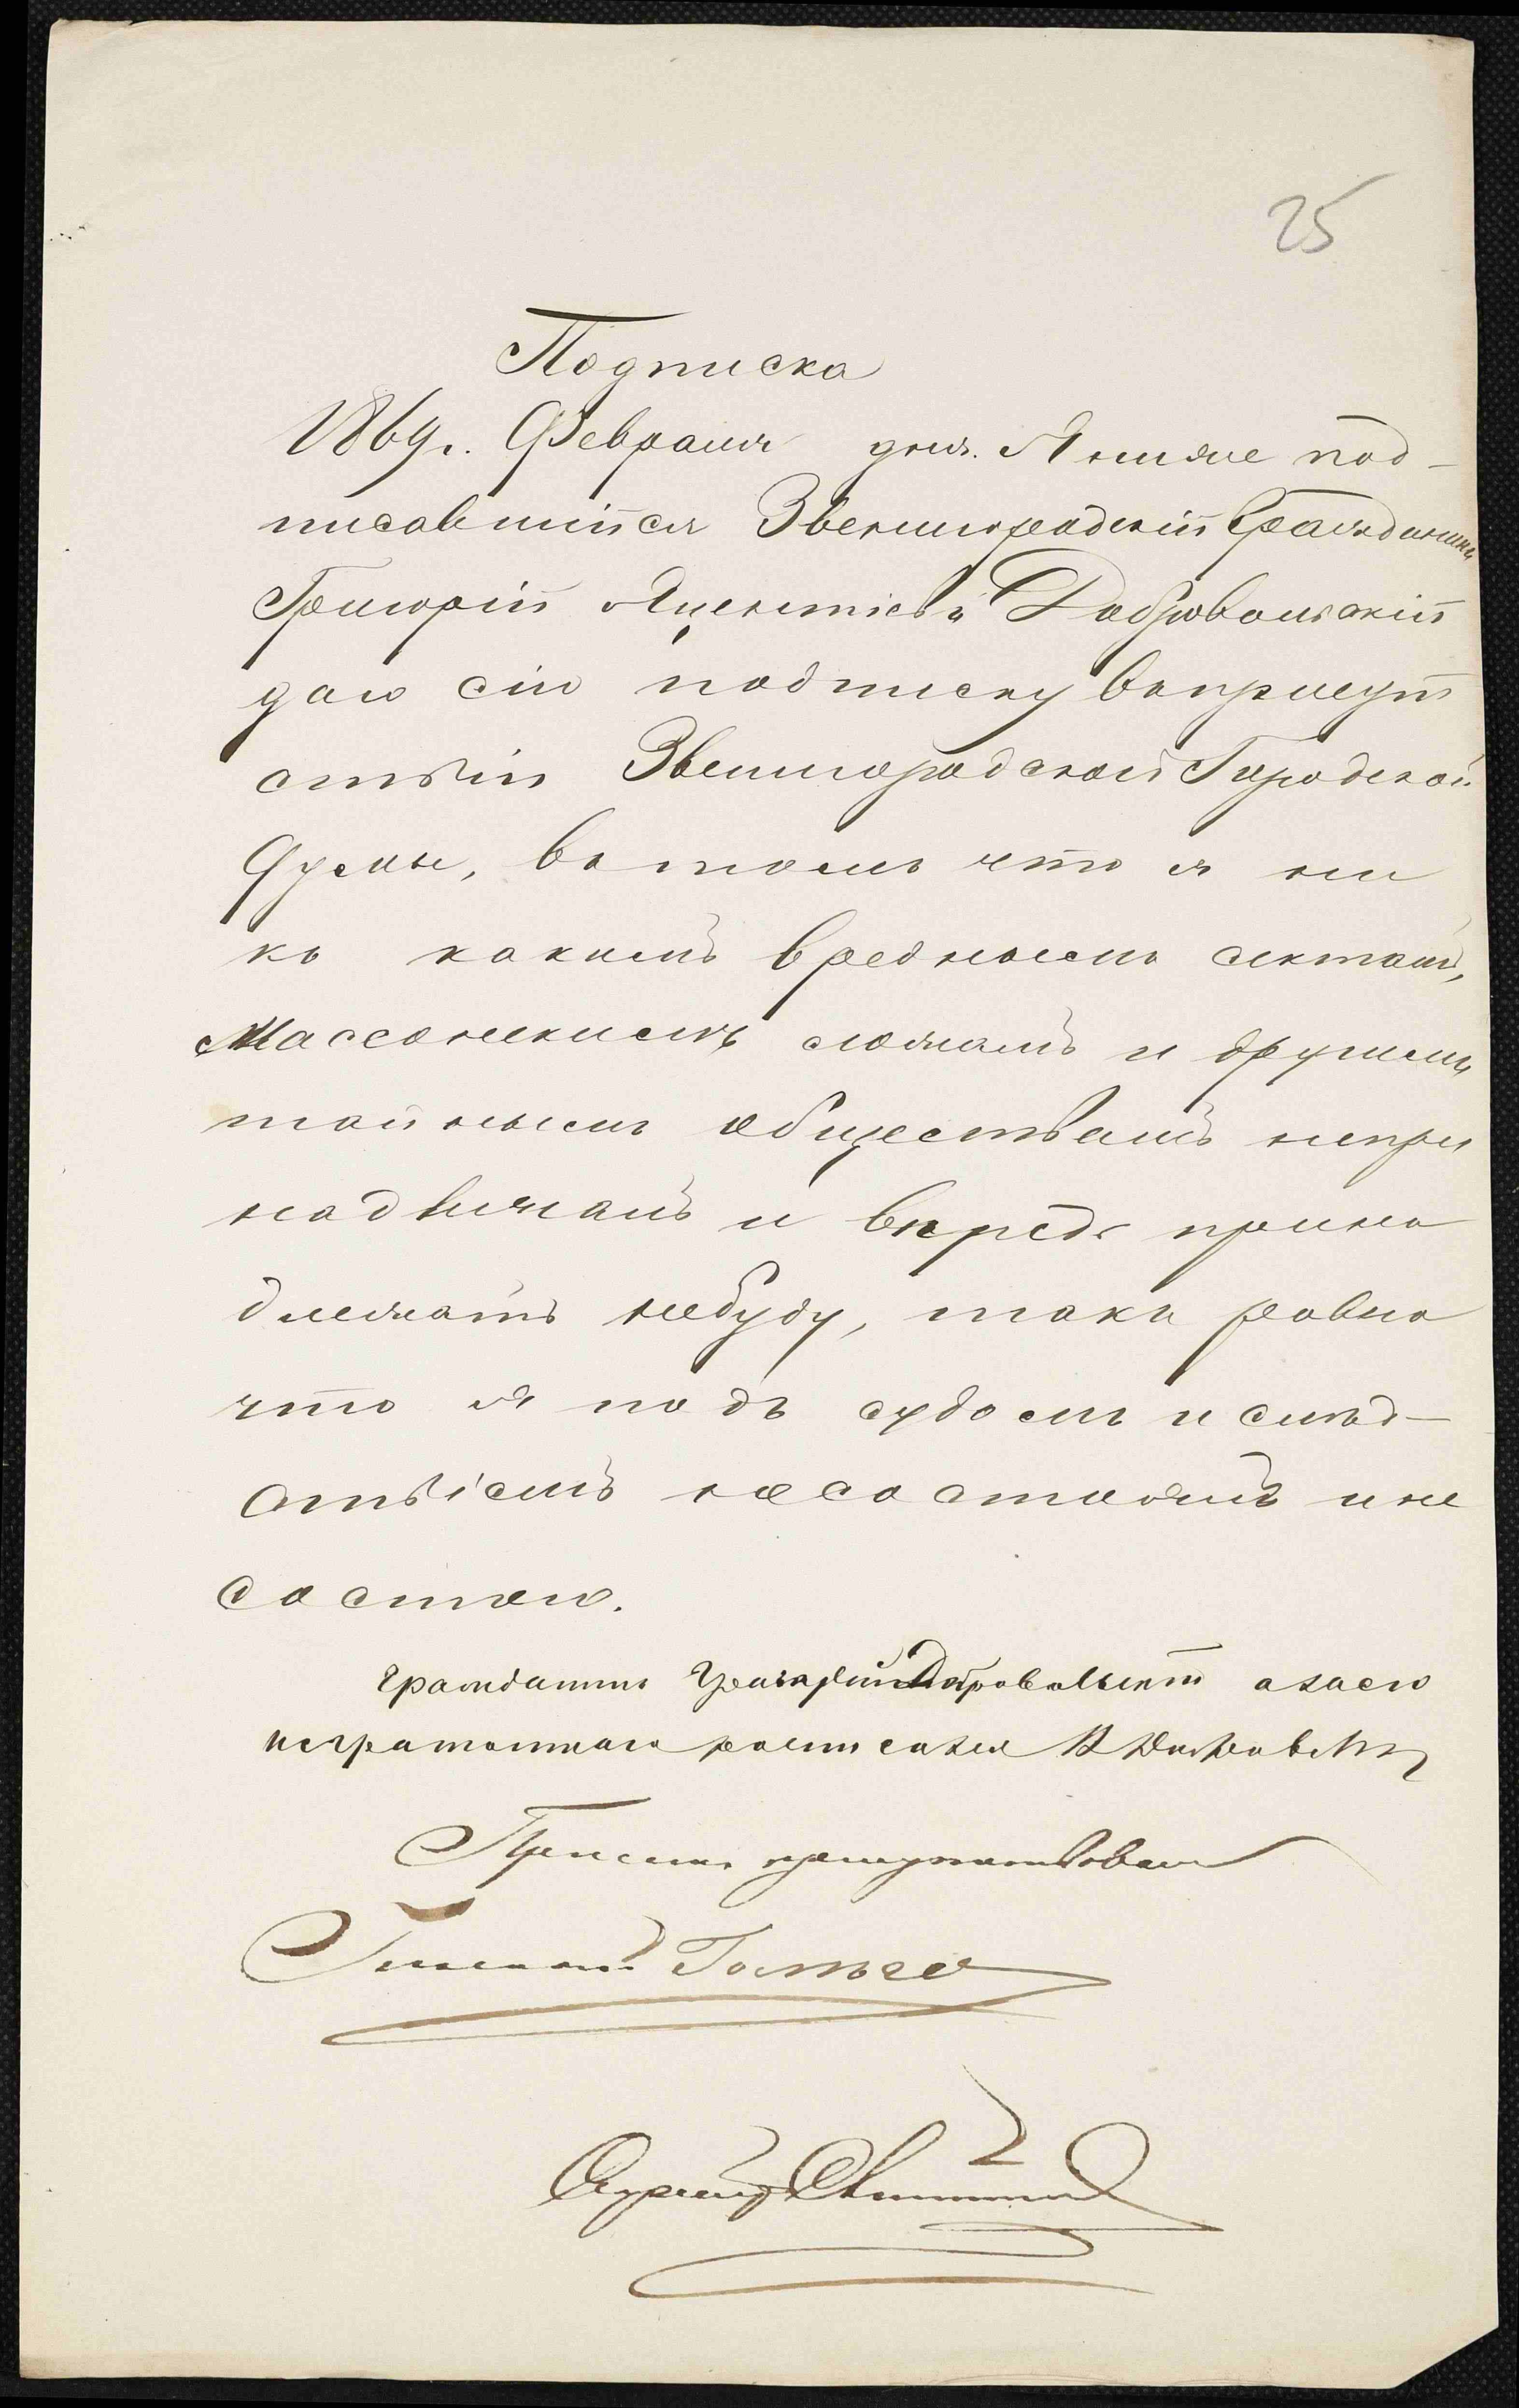 25
Подписка
1869г. Февраля дня. Я ниже под-
писавшійся Звенигородскій Гражданинъ
Григорій Яцентіевъ Добровольскій
даю сію подписку въ присут
ствіи Звенигородской Городской
Думы, въ томъ что я ни
къ какимъ вреднымъ сектамъ,
Массонскимъ ложамъ и другимъ
тайнымъ обществамъ непри
надлежалъ и впредь прина
длежать небуду, такъ равно
что я подъ судомъ и слѣд-
ствіемъ несостоялъ и не
состою.
Гражданинъ Григорій Добровольскій азаего
неграмотнаго росписался
При семъ присутствовали
Гласный